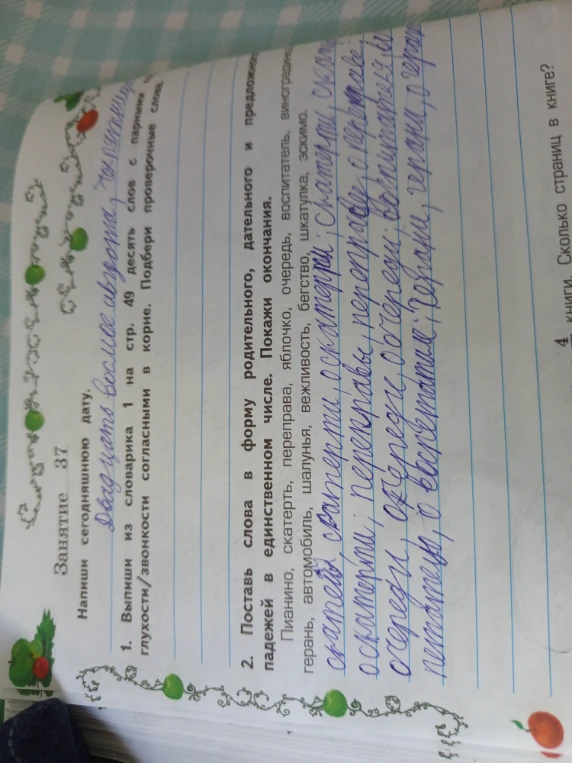 Занятие 37
Напиши сегодняшнюю дату.
Двадцать восьмое августа, пятница
1. Выпиши из словарика 1 на стр. 49 десять слов с парными
глухости/звонкости согласными в корне. Подбери проверочные слова.
2. Поставь слова в форму родительного, дательного и предложно
падежей в единственном числе. Покажи окончания.
Пианино, скатерть, переправа, яблочко, очередь, воспитатель, виноградин
герань, автомобиль, шалунья, вежливость, бегство, шкатулка, эскимо.
скатерти, скатерти
переправы, переправе, о переправе;
очереди, очереди, о очереди;
герани, герани, о геран
4
книги. Сколько страниц в книге?